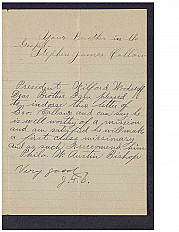 Your Brother in the
Gospel
Stephen James Callan
President Wilford Woodruff
Dear Brother I am pleased
to indorse this letter of
Bro. Callans and can say he
is well worthy of a mission
and am satisfied he will make
a first class missionary
and as such Reccomend him
Philo. W. Austin Bishop
Very good
J.F.S.